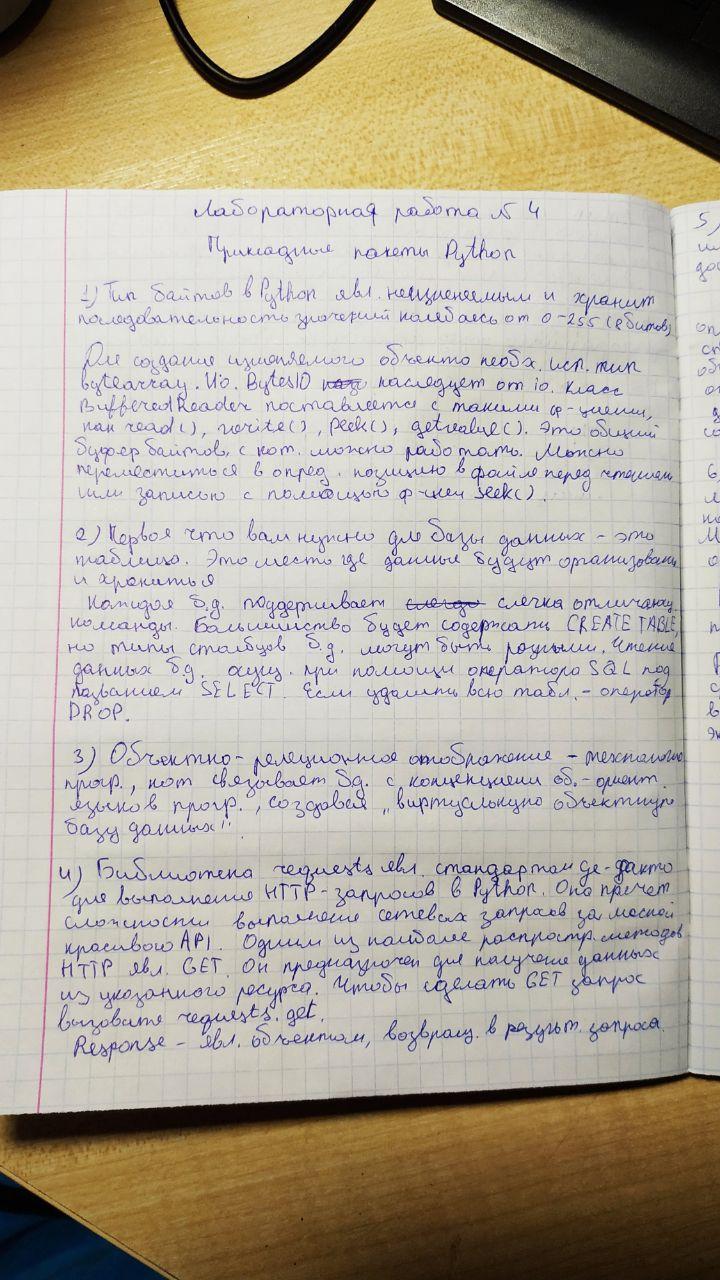 Лабораторная работа №4
Прикладные пакеты Python
1) Тип байтов в Python явл. неизменяемым и хранит
последовательность значений колебаясь от 0-255 (8 битов)
Для создание изменяемого объекта необх. исп. тип
bytearray. io. BytesIO наследует от io. Класс
BufferedReader поставляется с такими ф-циями,
как read(), write(), peek(), getvalue(). Это общий
буфер байтов, с кот. можно работать. Можно
переместиться в опред. позицию в файле перед чтением
или записью с помощью ф-ции seek().
2) Первое что вам нужно для базы данных - это
таблица. Это место где данные будут организованы
и храниться
Каждая б.д. поддерживает слегка отличающ.
команды. Большинство будет содержать CREATE TABLE,
но типы столбцов б.д. могут быть разными. Чтение
данных бд. осущ. при помощи оператора SQL под
названием SELECT. Если удалить всю табл. - оператор
DROP.
3) Объектно-реляционное отображение - технология
прогр., кот связывает бд. с концепциями об.-ориент.
языков прогр., создавая "виртуальную объектную
базу данных".
4) Библиотека requests явл. стандартом де-факто
для выполнения HTTP-запросов в Python. Она прячет
сложности выполнение сетевых запросов за маской
красивого API. Одним из наиболее распростр. методов
HTTP явл. GET. Он предназначен для получение данных
из указанного ресурса. Чтобы сделать GET запрос
вызовите requests.get.
Response - явл. объектом, возвращ. в результ. запроса.
5)
6)